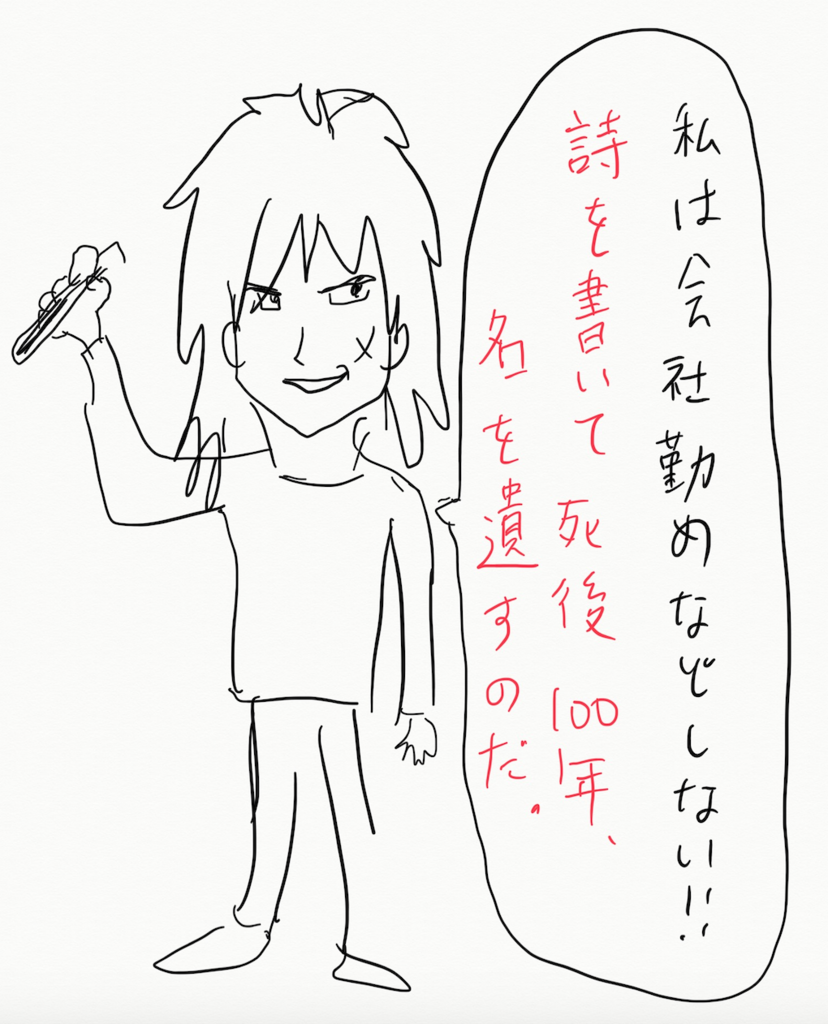 私は会社勤めなどしない!!
詩を書いて死後100年、
名を遺すのだ。